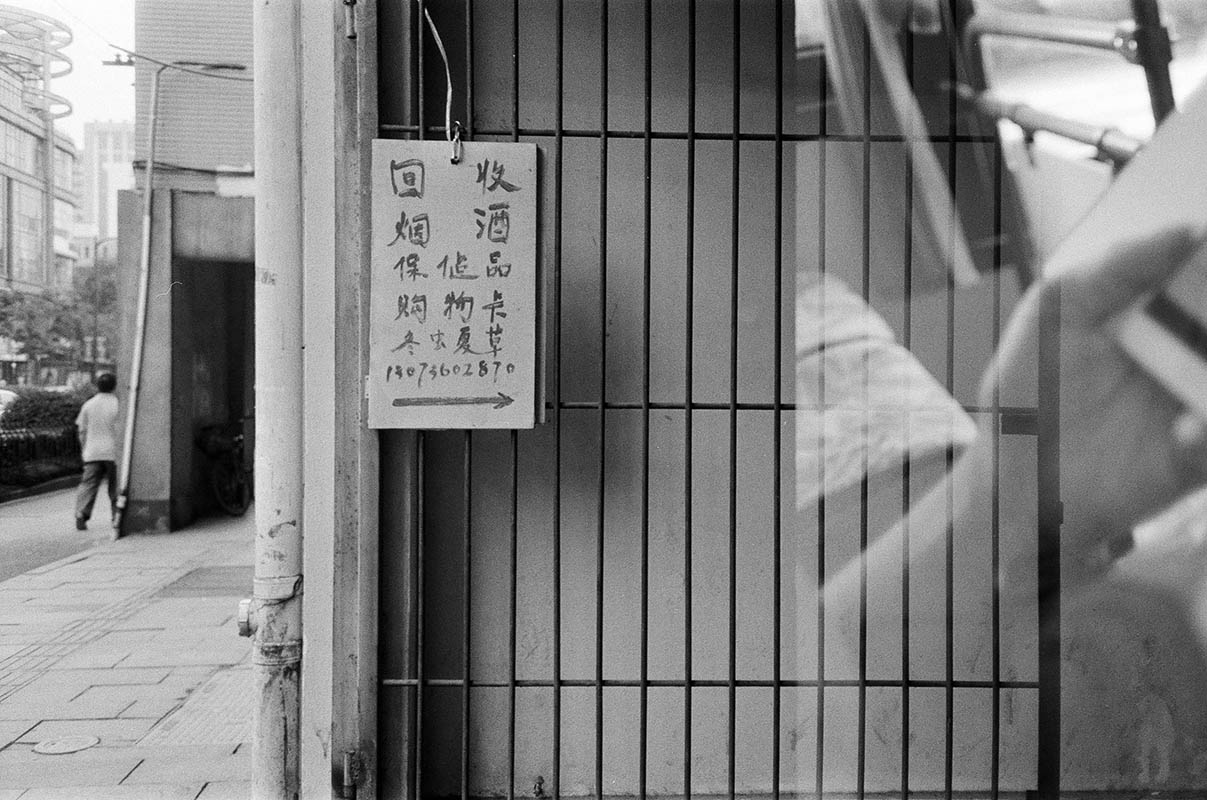 回 收
烟 酒
保 健 品
购 物 卡
冬 虫 夏 草
13073602870